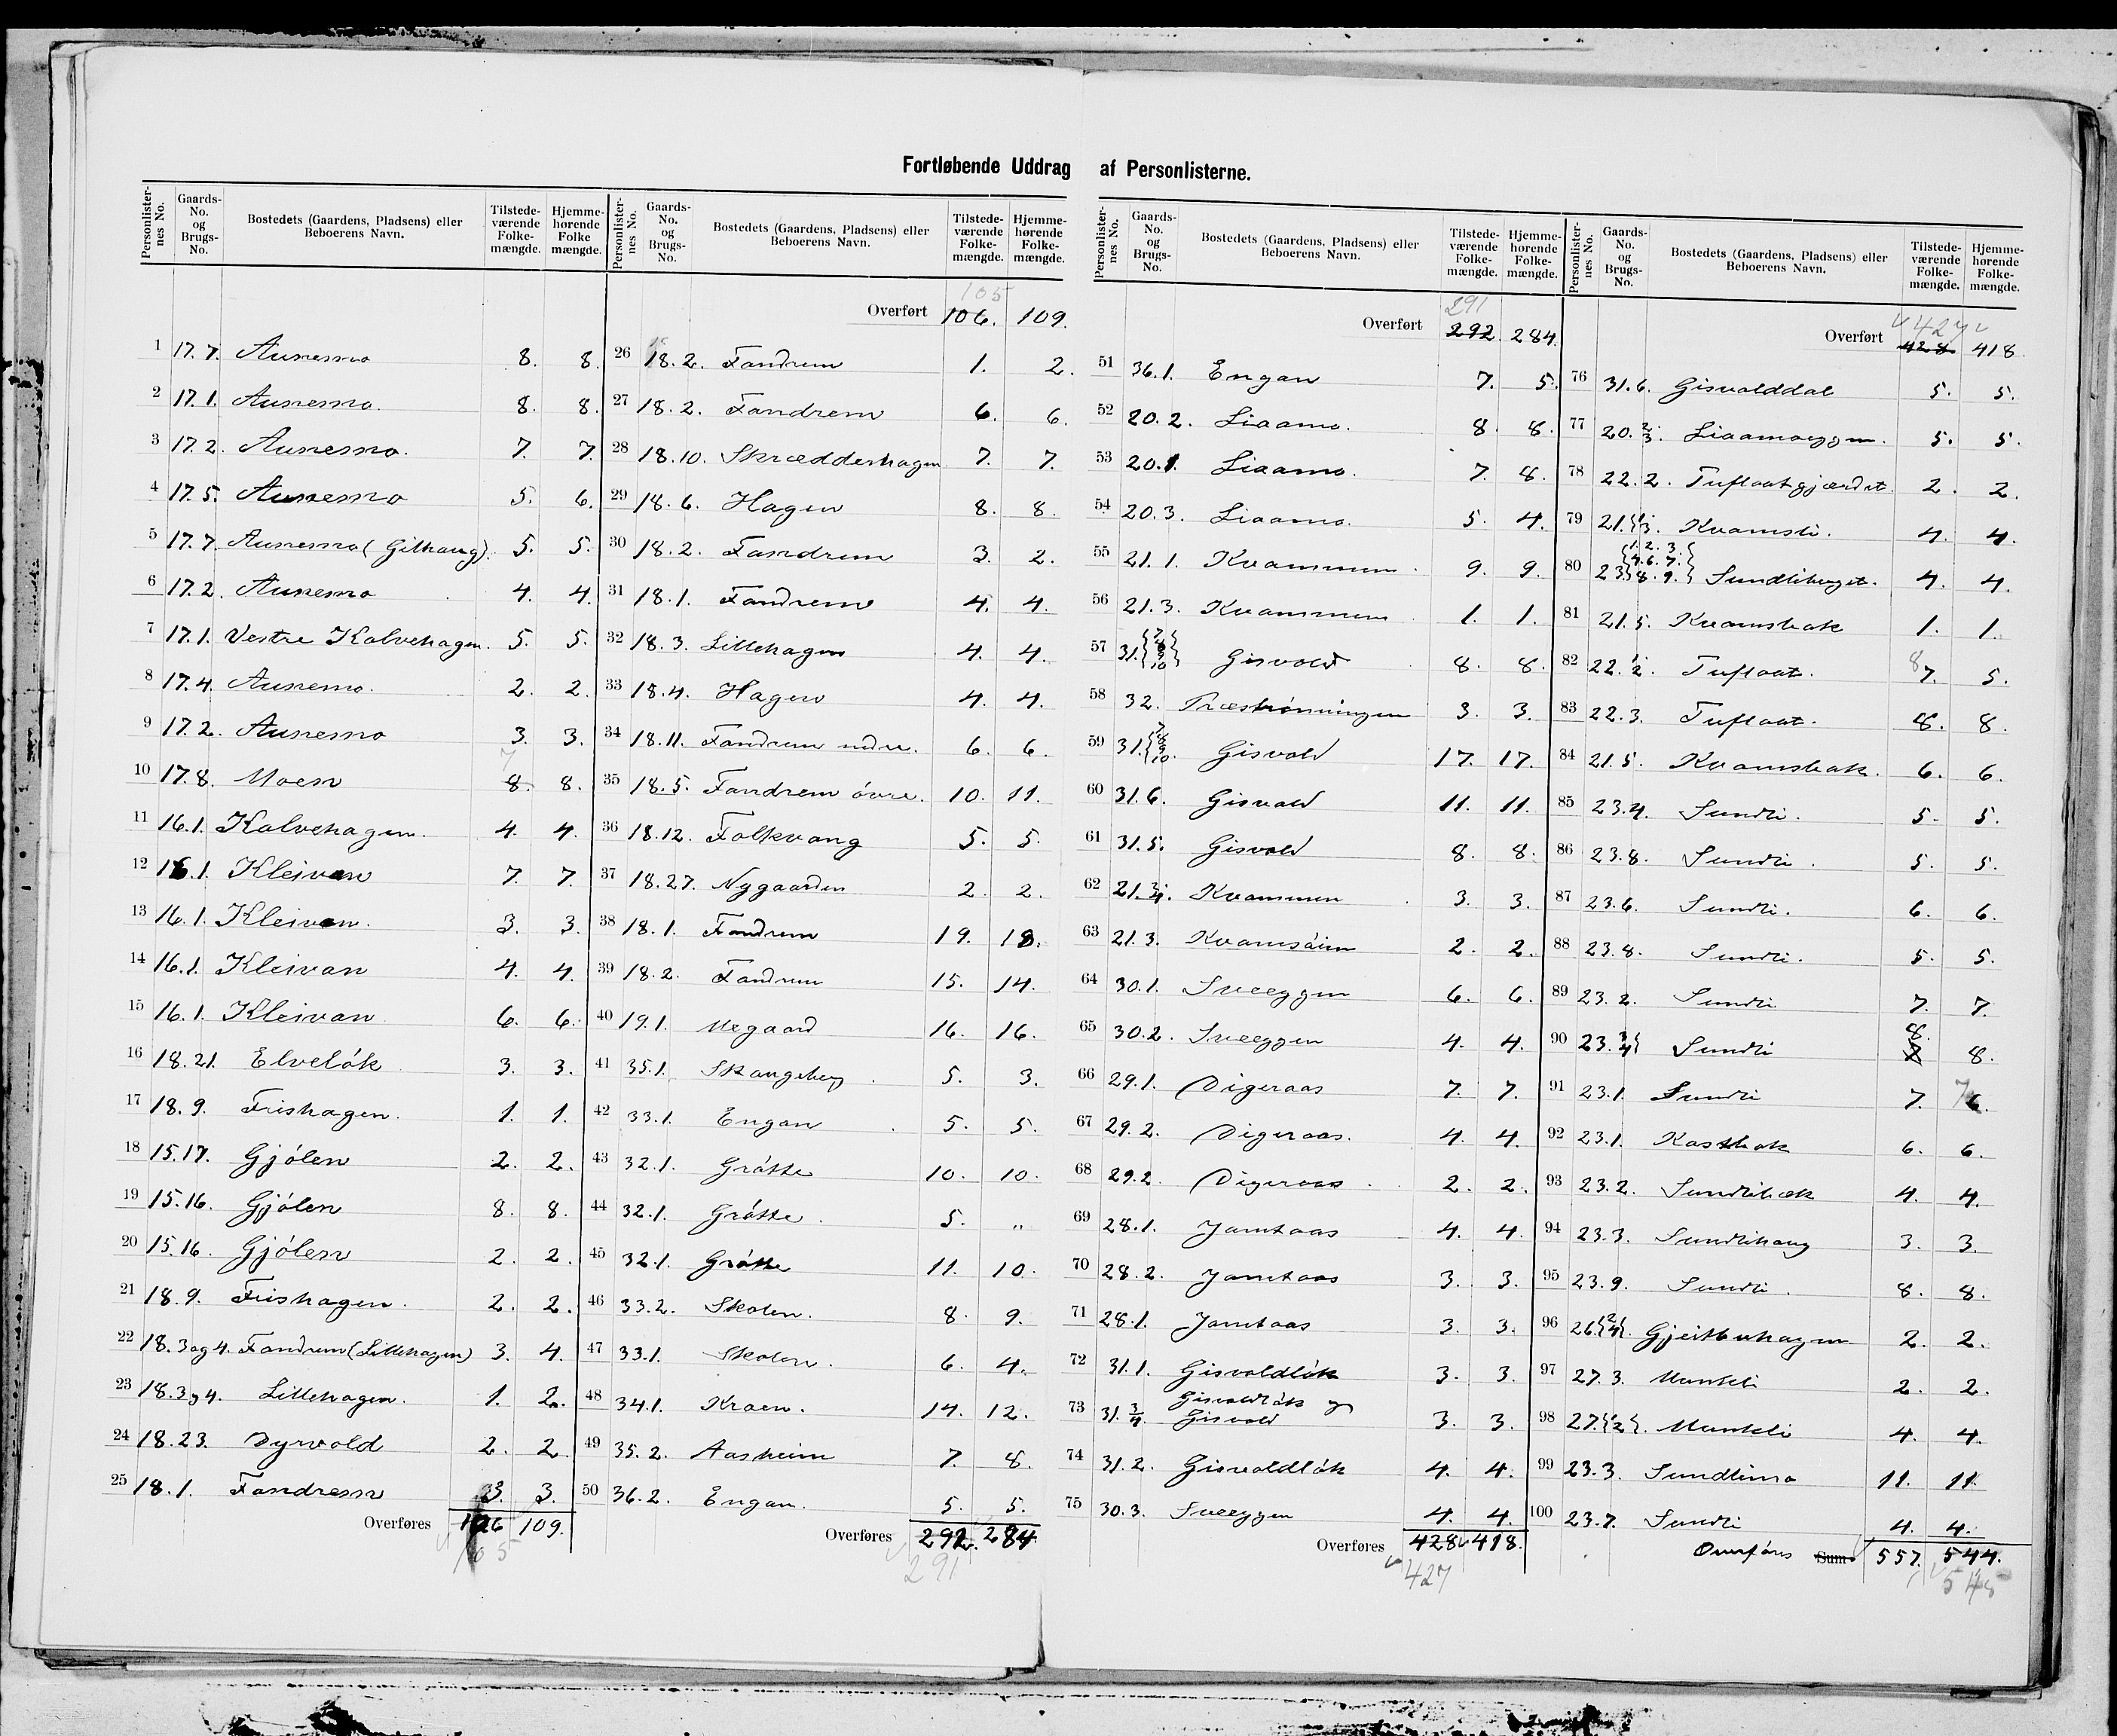 Fortløbende Uddrag af Personlisterne.
Personlister-nes No. Gaards-No. og Brugs-No. Bostedets (Gaardens, Pladsens) eller Beboerens Navn. Tilstede-værende Folke-mængde. Hjemme-hørende Folke mængde.
1 17.7. Aunemo 8. 8.
2 17.1. Aunemo. 8. 8.
3 17.2. Aunemo. 7. 7.
4 17.5. Aunemo 5. 6.
5 17.7. Aunemo (Gilhaug). 5. 5.
6 17.2. Aunemo 4. 4.
7 17.1. Vestre Kalvehagen. 5. 5.
8 17.4. Aunemo. 2. 2.
9 17.2. Aunemo 3. 3.
10 17.8. Moen 7 8. 8.
11 16.1. Kalvehagen. 4. 4.
12 16.1. Kleivan 7. 7.
13 16.1. Kleivan. 3. 3.
14 16.1. Kleivan 4. 4.
15 16.1. Kleivan 6. 6.
16 18.21. Elveløk 3. 3.
17 18.9. Frishagen. 1. 1.
18 15.17. Gjølen 2. 2.
19 15.16. Gjølen 8. 8.
20 15.16. Gjølen 2. 2.
21 18.9. Frishagen. 2. 2.
22 18.3 og 4. Fandrem (Lillehagen) 3. 4.
23 18.3 og 4. Lillehagen. 1. 2.
24 18.23. Dyrvold 2. 2.
25 18.1. Fandrem 3. 3.
Overføres 106 109.
105
Personlister-nes No. Gaards-No. og Brugs-No. Bostedets (Gaardens, Pladsens) eller Beboerens Navn. Tilstede-værende Folke-mængde. Hjemme-hørende Folke-mængde.
105
Overført 106. 109.
26 18.2. Fandrem 1. 2.
27 18.2. Fandrem 6. 6.
28 18.10. Skrædderhagen 7. 7.
29 18.6. Hagen 8. 8.
30 18.2. Fandrem 3. 2.
31 18.1. Fandrem 4. 4.
32 18.3. Lillehagen 4. 4.
33 18.4. Hagen 4. 4.
34 18.11. Fandrem nedre. 6. 6.
35 18.5. Fandrem øvre. 10. 11.
36 18.12. Folkvang 5. 5.
37 18.27. Nygaarden 2. 2.
38 18.1. Fandrem 19. 18.
39 18.2. Fandrem 15. 14.
40 19.1. Megaard 16. 16.
41 35.1. Skangsberg 5. 3.
42 33.1. Engan 5. 5.
43 32.1. Grøtte 10. 10.
44 32.1. Grøtte. 5. "
45 32.1. Grøtte 11. 10.
46 33.2. Skolen. 8. 9.
47 33.1. Skolen. 6. 4.
48 34.1. Kroen. 14. 12.
49 35.2. Aasheim 7. 8.
50 36.2. Engan. 5. 5.
Overføres 292. 284.
291
Personlister-nes No. Gaards-No. og Brugs-No. Bostedets (Gaardens, Pladsens) eller Beboerens Navn. Tilstede-værende Folke-mængde. Hjemme-hørende Folke-mængde.
291
Overført 292. 284.
51 36.1. Engan 7. 5.
52 20.2. Liaamo. 8. 8.
53 20.1. Liaamo. 7. 8.
54 20.3. Liaamo. 5. 4.
55 21.1. Kvammen 9. 9.
56 21.3. Kvammen 1. 1.
57 31. Gisvold 8. 8.
58 32. Præstrønningen 3. 3.
59 31. Gisvold 17. 17.
60 31.6. Gisvold 11. 11.
61 31.5. Gisvold 8. 8.
62 21.3.4. Kvammen 3. 3.
63 21.3. Kvamsøien 2. 2.
64 30.1. Sveeggen 6. 6.
65 30.2. Sveeggen 4. 4.
66 29.1. Digeraas 7. 7.
67 29.2. Digeraas. 4. 4.
68 29.2. Digeraas. 2. 2.
69 28.1. Jamtaas 4. 4.
70 28.2. Jamtaas 3. 3.
71 28.1. Jamtaas 3. 3.
72 31.1. Gisvoldløk 3. 3.
73 31.3/4. Gisvoldløk og Gisvold 3. 3.
74 31.2. Gisvoldløk 4. 4.
75 30.3. Sveeggen 4. 4.
Overføres 428. 418.
427
Personlister-nes No. Gaards-No. og Brugs-No. Bostedets (Gaardens, Pladsens) eller Beboerens Navn. Tilstede-værende Folke-mængde. Hjemme-hørende Folke-mængde.
427
Overført 428 418.
76 31.6. Gisvolddal 5. 5.
77 20.2/3. Liaamoeggen. 5. 5.
78 22.2. Tufloatgjærdet. 2. 2.
79 21.1/3. Kvamsli. 4. 4.
80 23.{1.2.3. 4.6.7. 8.9.} Sundliberget. 4. 4.
81 21.5. Kvamsbak 1. 1.
82 22.1/2. Tufloat. 8 7. 5.
83 22.3. Tufloat. 8. 8.
84 21.5. Kvamsbak. 6. 6.
85 23.4. Sundli. 5. 5.
86 23.8. Sundli. 5. 5.
87 23.6. Sundli. 6. 6.
88 23.8. Sundli. 5. 5.
89 23.2. Sundli 7. 7.
90 23.3/4 Sundli 8. 8.
91 23.1. Sundli 7. 7 6.
92 23.1. Kasbak 6. 6.
93 23.2. Sundlibæk 4. 4.
94 23.3. Sundlihaug 3. 3.
95 23.9. Sundli. 8. 8.
96 26.{2/4}. Gjeitbuhagen 2. 2.
97 27.3. Munkli 2. 2.
98 27.{1/2}. Munkli 4. 4.
99 23.3. Sundlimo 11. 11.
100 23.7. Sundli 4. 4.
Overføres Sum 557. 544.
545